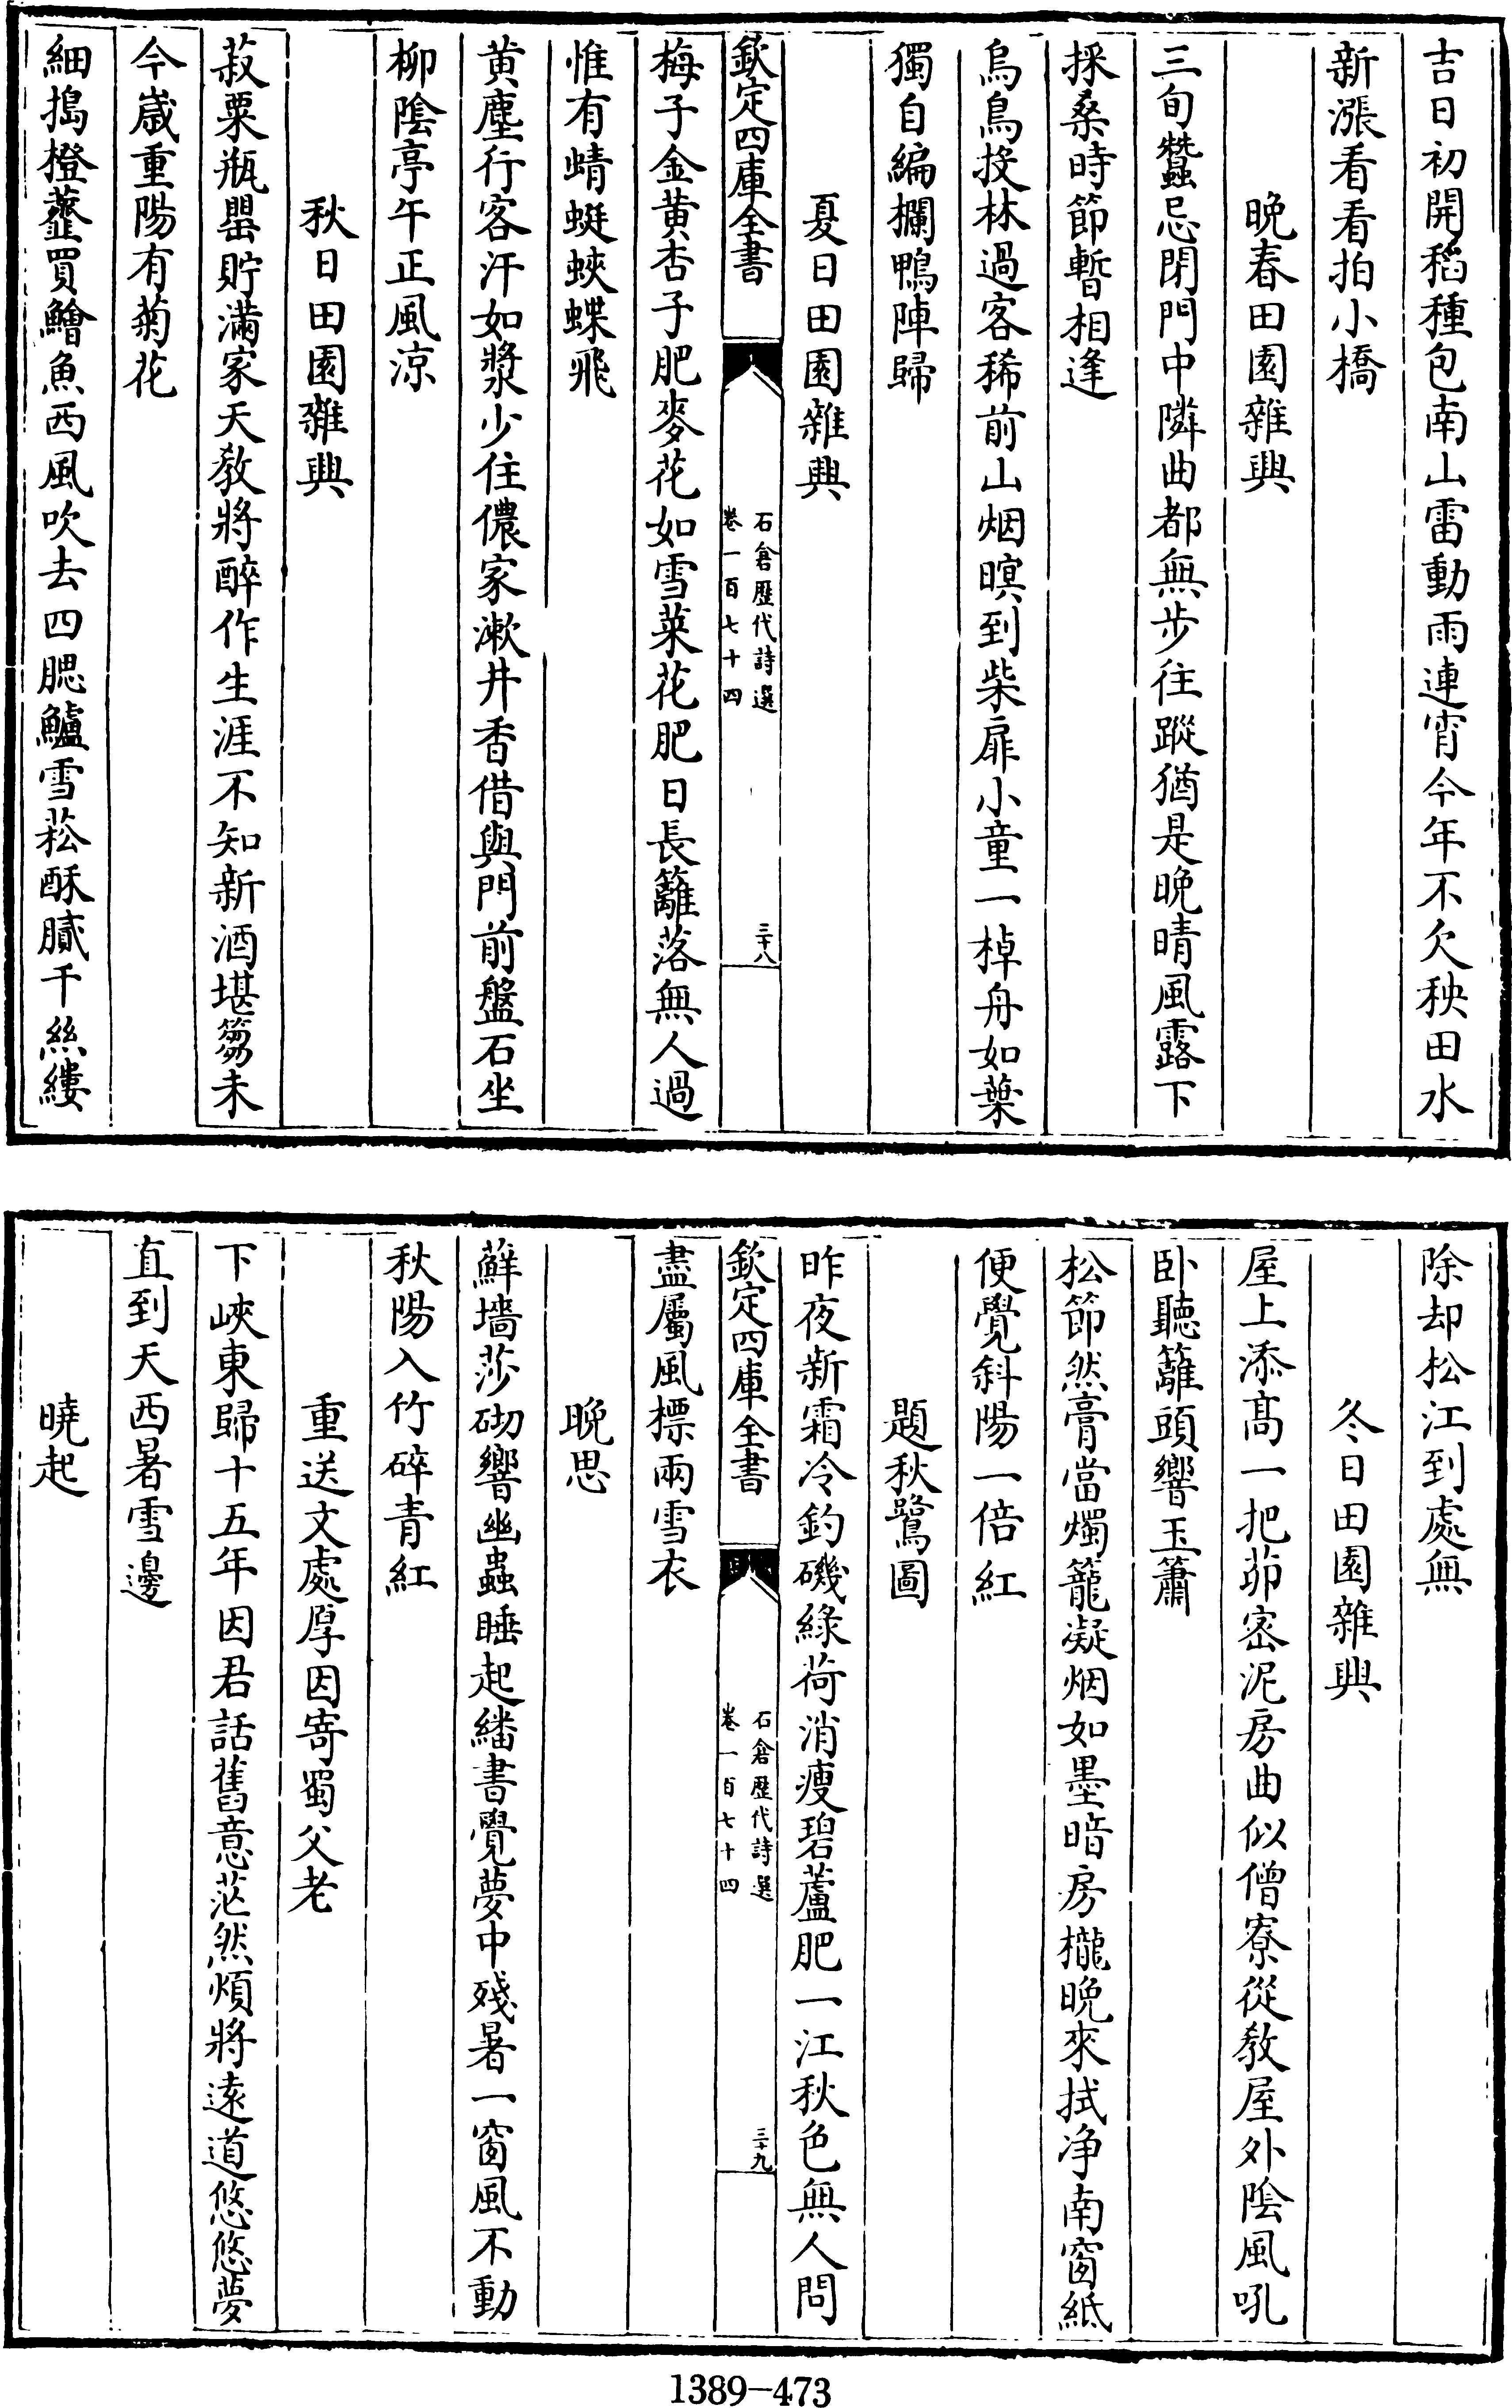 吉日初開稻種包南山雷動雨連宵今年不欠秧田水
新漲看看拍小橋
晚春田園雜興
三旬蠶忌閉門中隣曲都無步往蹤猶是晚晴風露下
採桑時節暫相逢
烏鳥投林過客稀前山烟暝到柴扉小童一棹舟如葉
獨自編欄鴨陣歸
夏日田園雜興
欽定四庫全書
石倉歷代詩選
卷一百七十四
三十八
梅子金黄杏子肥麥花如雪菜花肥日長籬落無人過
惟有蜻蜓蛺蝶飛
黄塵行客汗如漿少住儂家漱井香借與門前盤石坐
柳陰亭午正風涼
秋日田園雜興
菽粟瓶罌貯滿家天教將醉作生涯不知新酒堪篘未
今歲重陽有菊花
細搗橙虀買鱠魚西風吹去四腮鱸雪菘酥膩千絲縷
除却松江到處無
冬日田園雜興
屋上添髙一把茆宻泥房曲似僧寮從教屋外陰風吼
卧聽籬頭響玉簫
松節然膏當燭籠凝烟如墨暗房櫳晚來拭净南窗紙
便覺斜陽一倍紅
題秋鷺圖
昨夜新霜冷釣磯綠荷消瘦碧蘆肥一江秋色無人問
欽定四庫全書
石倉歷代詩選
卷一百七十四
三十九
盡屬風標兩雪衣
晚思
蘚墻莎砌響幽蟲睡起繙書覺夢中殘暑一窗風不動
秋陽入竹碎青紅
重送文處厚因寄蜀父老
下峽東歸十五年因君話舊意茫然煩將逺道悠悠夢
直到天西暑雪邊
曉起
1389-473